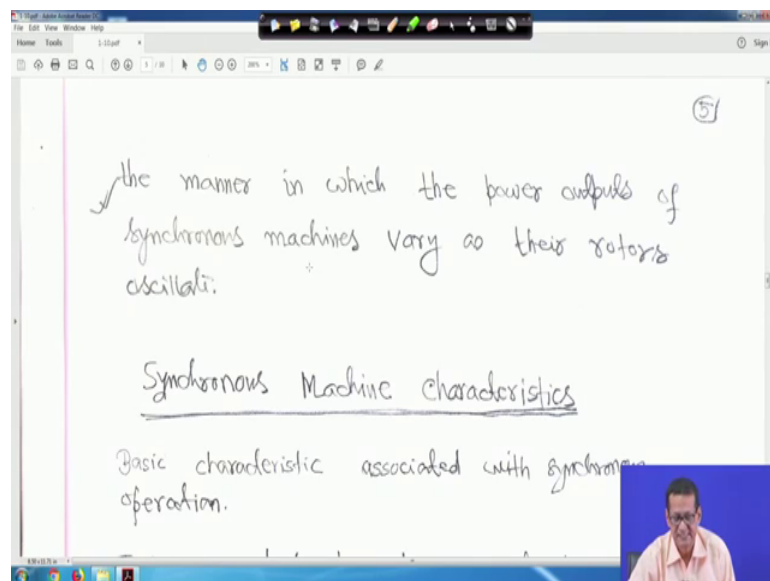 1-10.pdf - Adobe Acrobat Reader DC
File Edit View Window Help
Home Tools 1-10.pdf × Sign
5 / 10
200%
5
the manner in which the power outputs of
synchronous machines vary as their rotors
oscillate.
Synchronous Machine Characteristics
Basic characteristic associated with synchronous
operation.
8.50 x 11.71 in